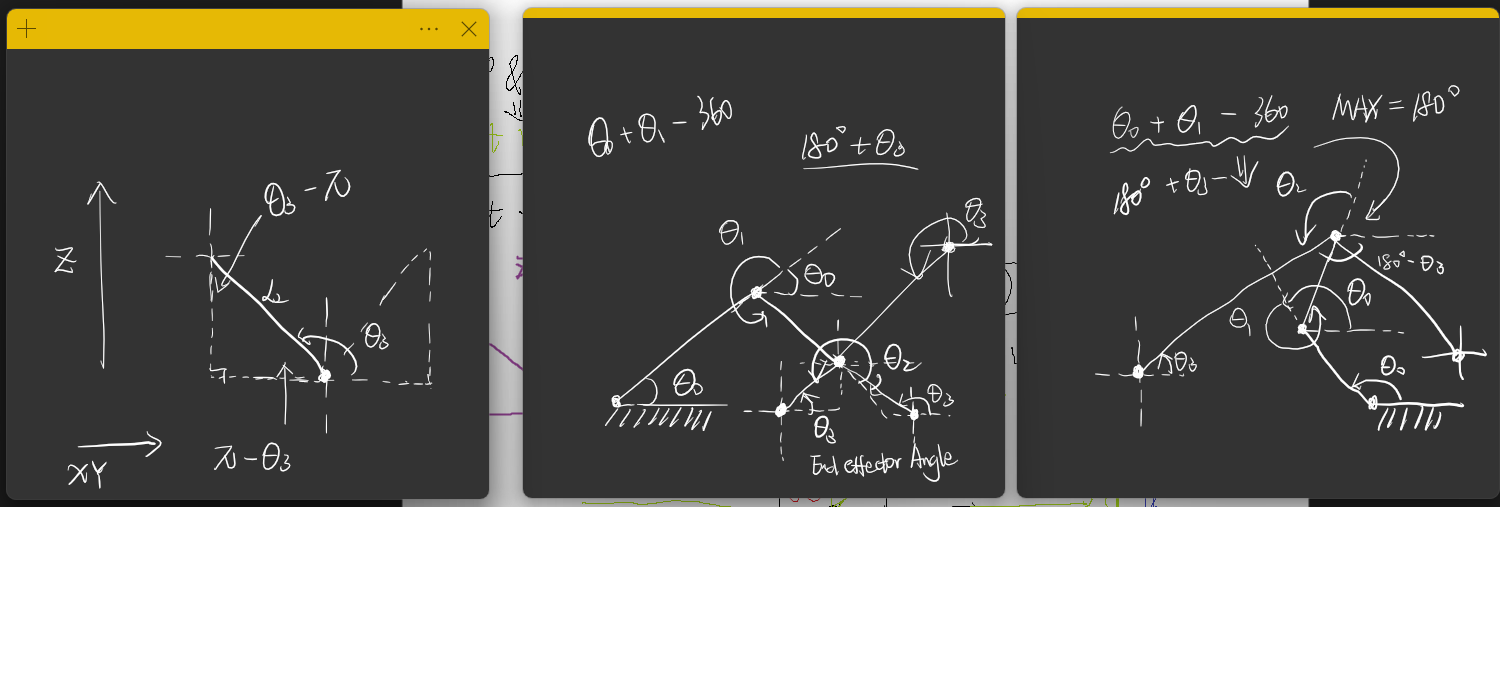 θ₃ - π
Z
L₂
θ₃
π - θ₃
XY
θ₀ + θ₁ - 360
180° + θ₃
θ₃
θ₁
θ₀
θ₂
θ₀
θ₃
θ₃
End effector Angle
θ₀ + θ₁ - 360
MAX = 180°
180° + θ₃ -
θ₂
180° - θ₃
θ₀
θ₁
θ₃
θ₀
&